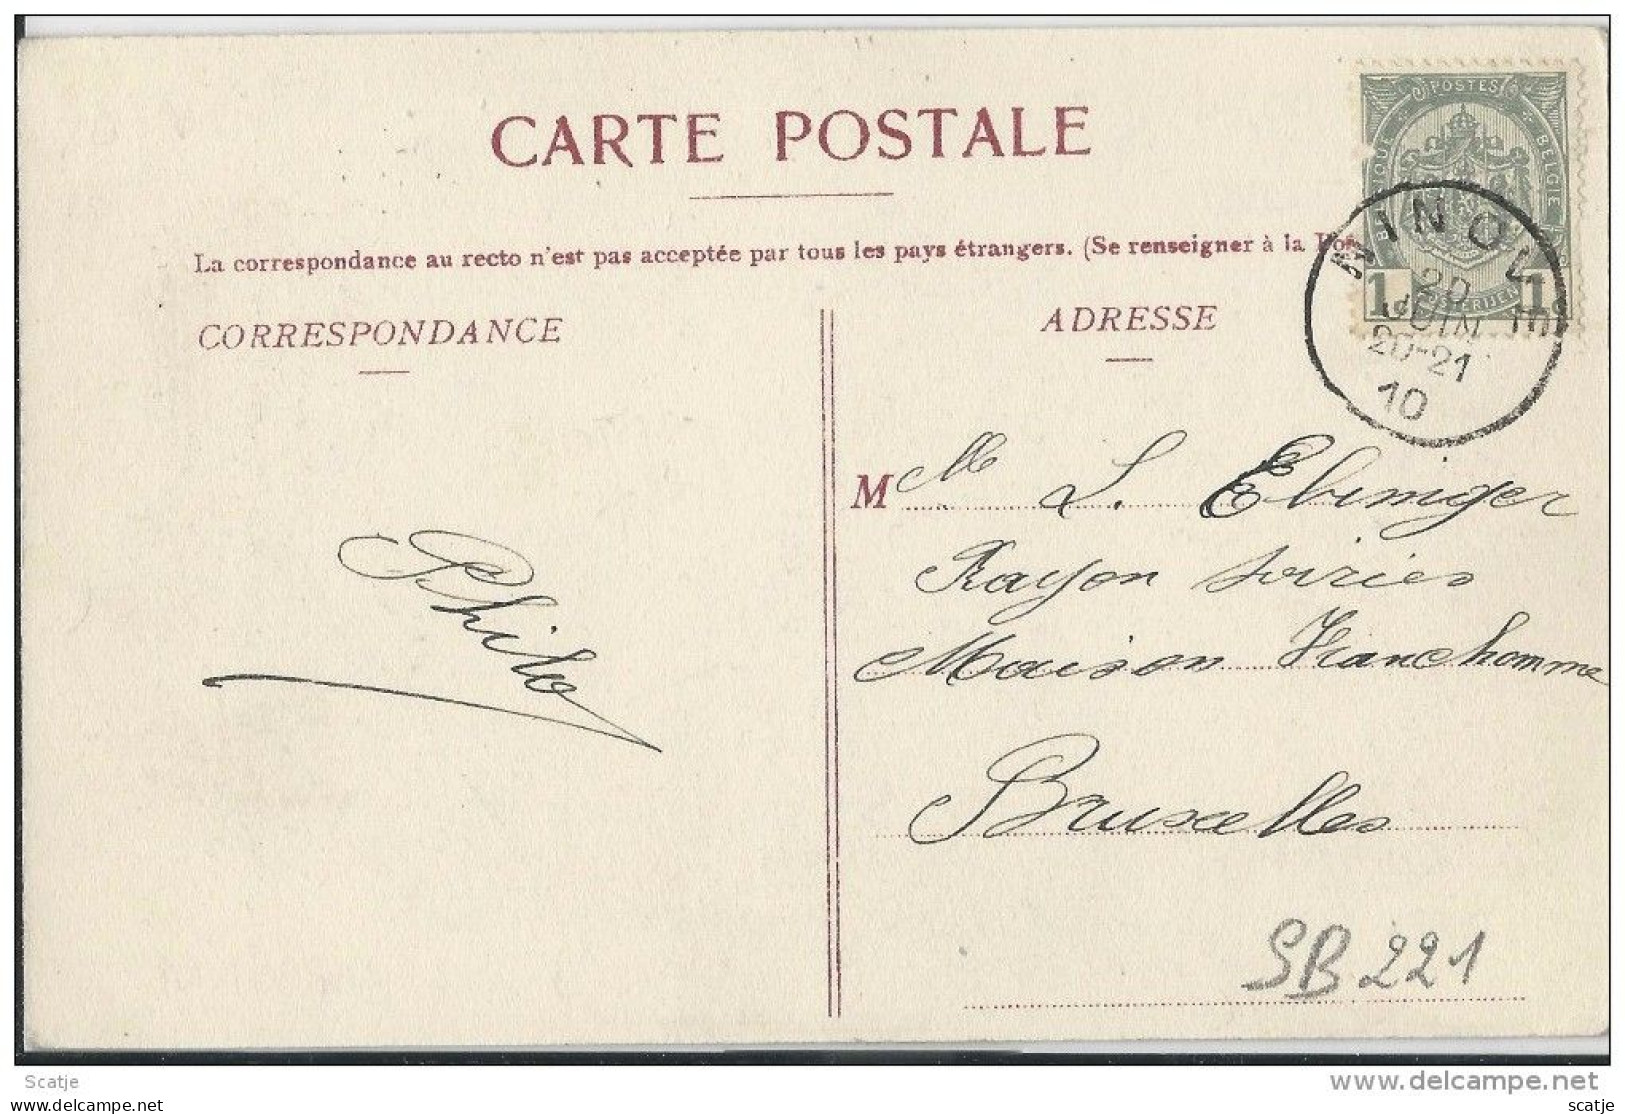 CARTE POSTALE
La correspondance au recto n'est pas acceptée par tous les pays étrangers. (Se renseigner à la
CORRESPONDANCE
ADRESSE
POSTES
BELGIQUE
BELGIE
1
1
NINOV
20
JUIN
20-21
10
Mlle L. Ebinger
Rayon soiries
Maison Franchomme
Bruxelles
Philo
SB 221
Scatje
scatje
www.delcampe.net
scatje